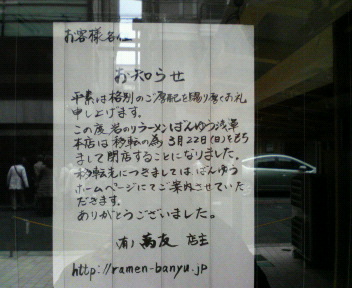 お客様各位
お知らせ
平素は格別のご高配を賜り厚くお礼
申し上げます。
この度岩のりラーメンばんゆう浅草
本店は移転の為3月22日(日)をもち
まして閉店することになりました。
移転先につきましては、ばんゆう
ホームページにてご案内させていた
だきます。
ありがとうございました。
(有)萬友 店主
http://ramen-banyu.jp